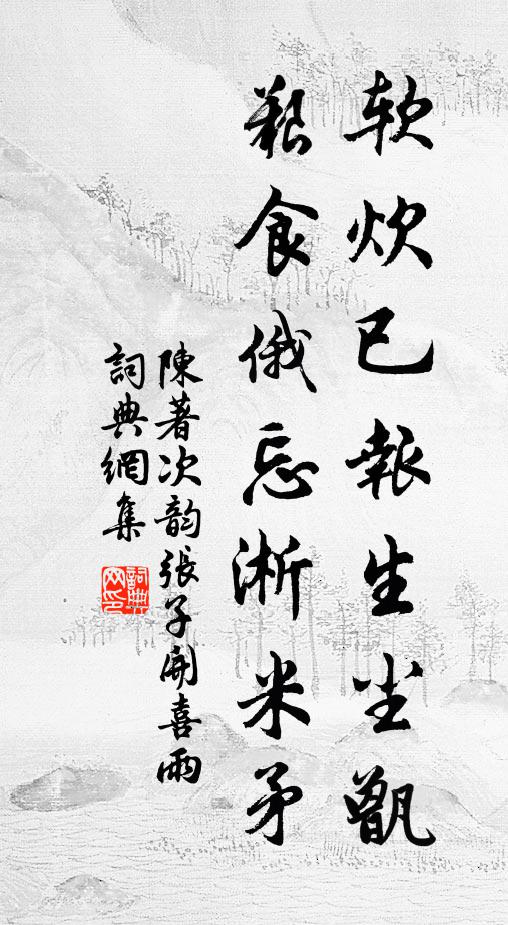 软炊已報生尘甑
艱食俄忘淅米矛
陳著次韵張子開喜雨
詞典網集
詞典网印